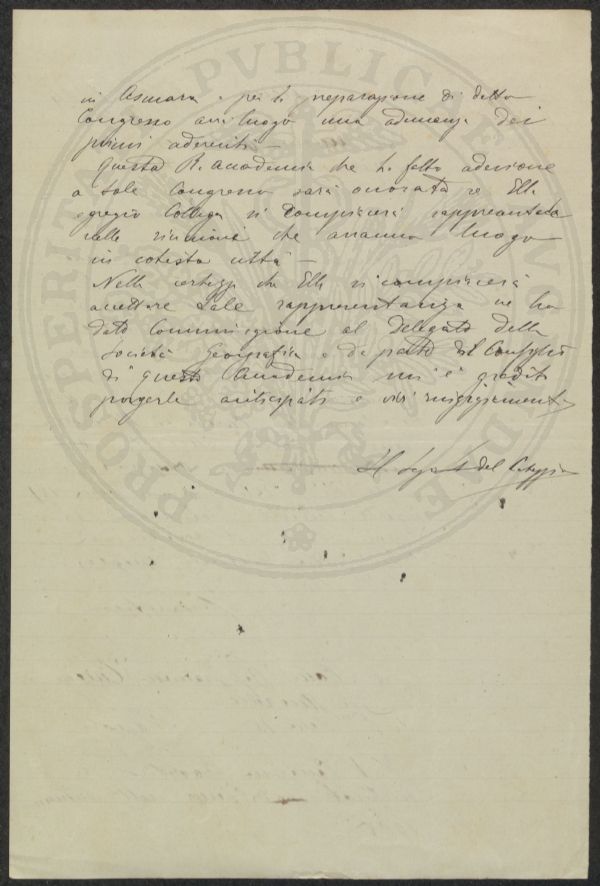 in Asmara e per la preparazione di detto
Congresso avrà luogo una adunanza dei
primi aderenti —
Questa R. Accademia che ha fatto adesione
a tale Congresso sarà onorata se Ella
egregio Collega si compiacerà rappresentarla
nelle riunioni che avranno luogo
in cotesta città —
Nella certezza che Ella si compiacerà
accettare tale rappresentanza ne ho
dato Communicazione al Delegato della
Società Geografica e da parte del Consiglio
di questa Accademia mi è gradito
porgerle anticipati e vivi ringraziamenti
Il del
PVBLIC
PROSPERITA